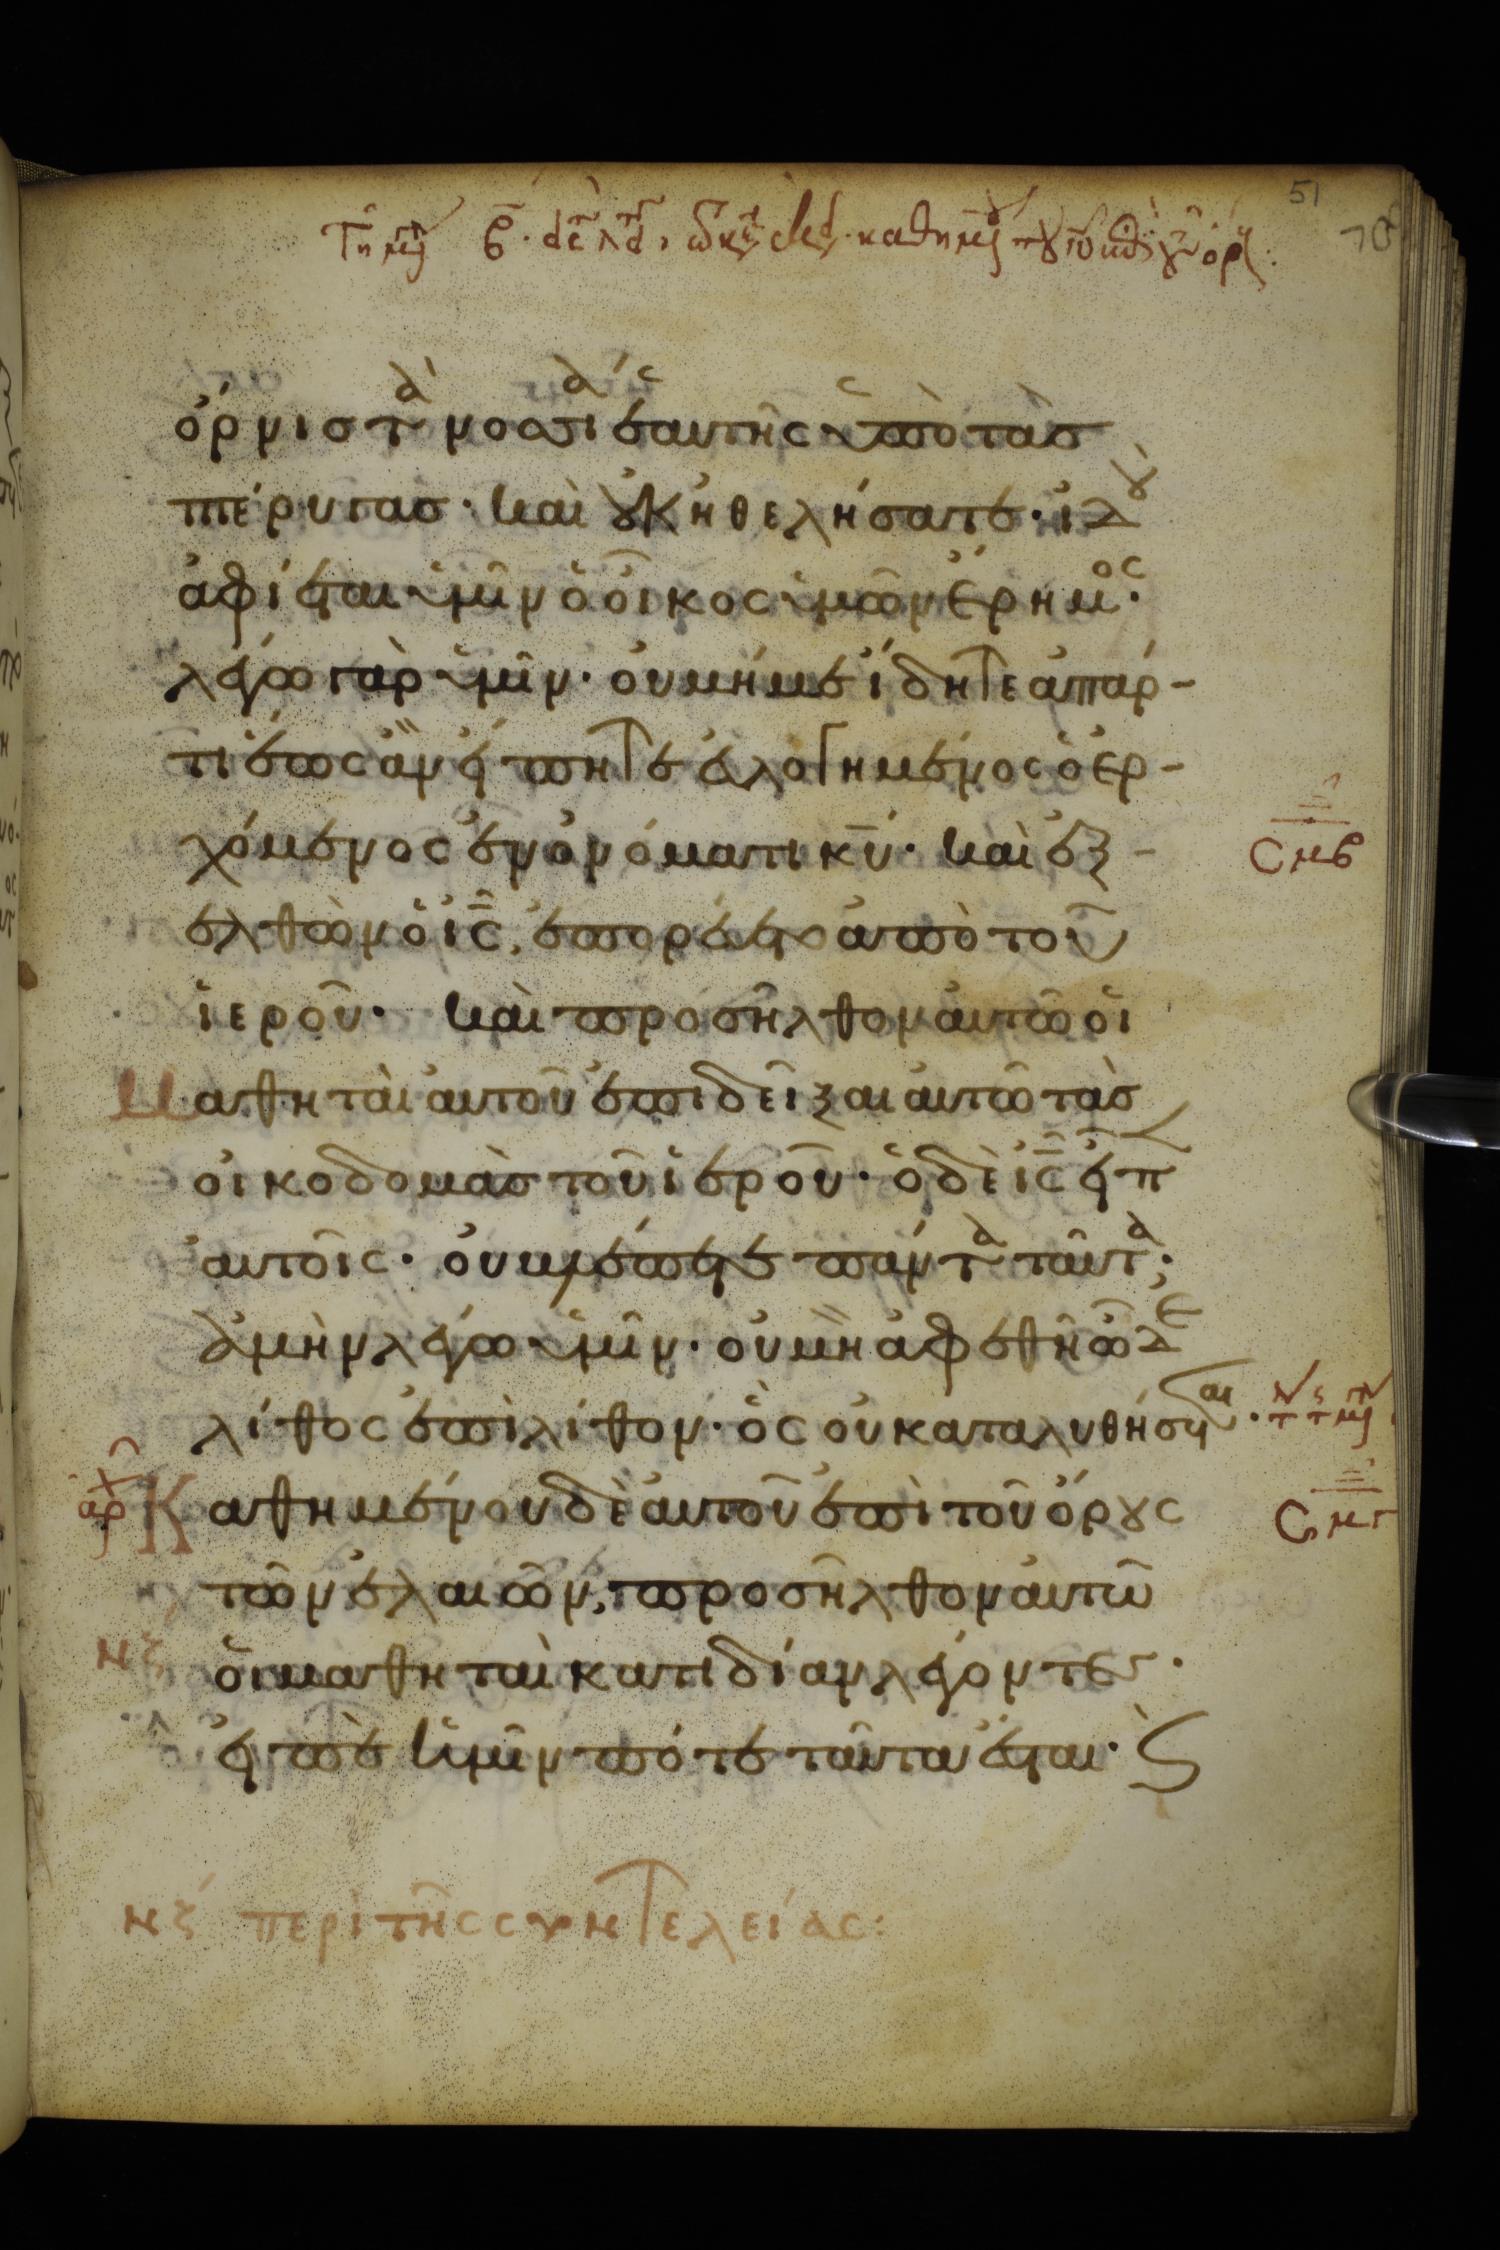 51
ὄρνις τὰ νοσσία ἑαυτῆς ὑπὸ τὰσ
πτέρυγας· καὶ οὐκ ἠθελήσατε· ἰδοὺ
ἀφίεται ὑμῖν ὁ οἶκος ὑμῶν ἔρημος·
λέγω γὰρ ὑμῖν· οὐ μή με ἴδητε ἀπάρ-
τι ἕως ἂν εἴπητε εὐλογημένος ὁ ἐρ-
χόμενος ἐν ὀνόματι κ̅υ̅· καὶ ἐξ-
ελθὼν ὁ ι̅ς̅, ἐπορεύετο ἀπὸ τοῦ
ἱεροῦ· καὶ προσῆλθον αὐτῶ οἱ
μαθηταὶ αὐτοῦ ἐπιδεῖξαι αὐτῶ τὰσ
οἰκοδομὰσ τοῦ ἱεροῦ· ὁ δὲ ι̅ς̅ εἶπ
αὐτοῖς· οὐ βλέπετε πάντα ταῦτα;
ἀμὴν λέγω ὑμῖν· οὐ μὴ ἀφεθῆ ὧδε
λίθος ἐπὶ λίθον· ὃς οὐ καταλυθήσεται·
Καθημένου δὲ αὐτοῦ ἐπὶ τοῦ ὄρους
τῶν ἐλαιῶν, προσῆλθον αὐτῶ
οἱ μαθηταὶ κατιδίαν λέγοντες·
εἰπὲ ἡμῖν πότε ταῦτα ἔσται·
νζ περὶ τῆς συντελείας:
σμβ
αρχ
σμγ
νζ